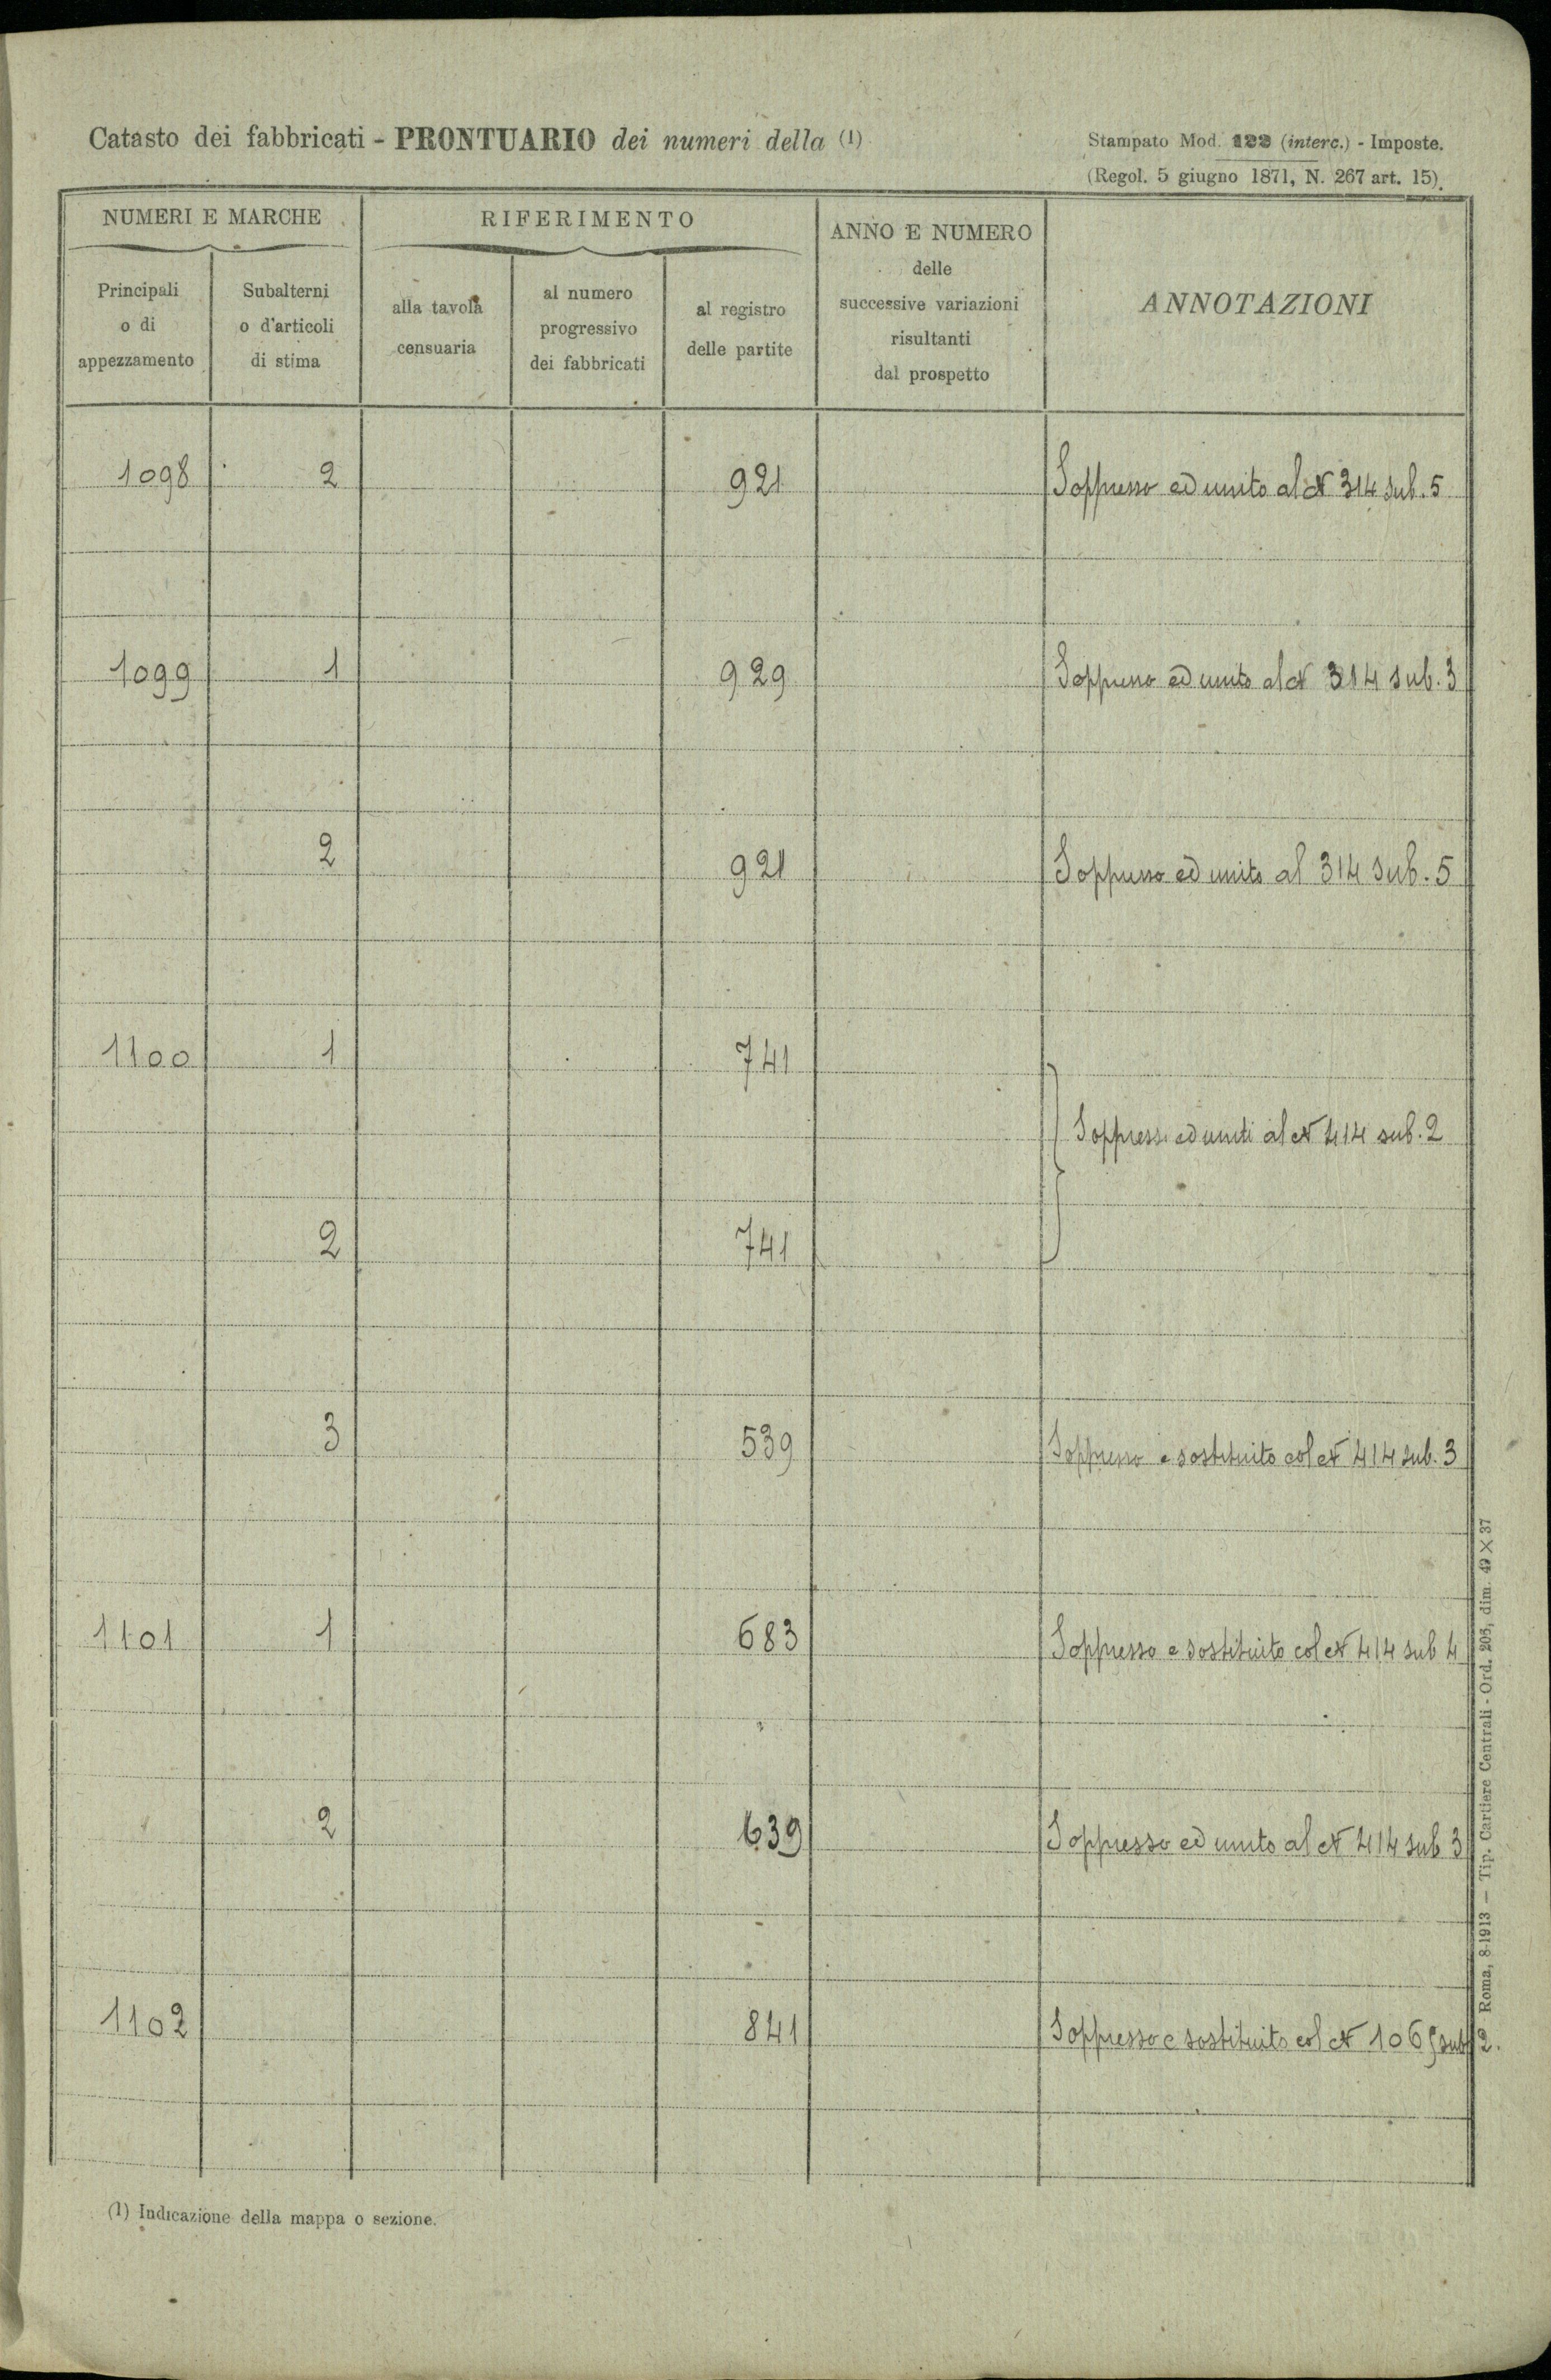 Catasto dei fabbricati - PRONTUARIO dei numeri della (1)
Stampato Mod. 122 (interc.) - Imposte.
(Regol. 5 giugno 1871, N. 267 art. 15).
NUMERI E MARCHE
RIFERIMENTO
ANNO E NUMERO
delle
successive variazioni
risultanti
dal prospetto
ANNOTAZIONI
Principali
o di
appezzamento
Subalterni
o d'articoli
di stima
alla tavola
censuaria
al numero
progressivo
dei fabbricati
al registro
delle partite
1098 2 921 Soppresso ed unito al N 314 sub. 5
1099 1 929 Soppresso ed unito al N 314 sub. 3
2 921 Soppresso ed unito al 314 sub. 5
1100 1 741
Soppressi ed uniti al N 414 sub. 2
2 741
3 539 Soppresso e sostituito col N 414 sub. 3
1101 1 683 Soppresso e sostituito col N 414 sub 4
2 639 Soppresso ed unito al N 414 sub 3
1102 841 Soppresso e sostituito col N 1065 sub 2.
(1) Indicazione della mappa o sezione.
Roma, 8-1913 — Tip. Cartiere Centrali - Ord. 205, dim. 49 × 37